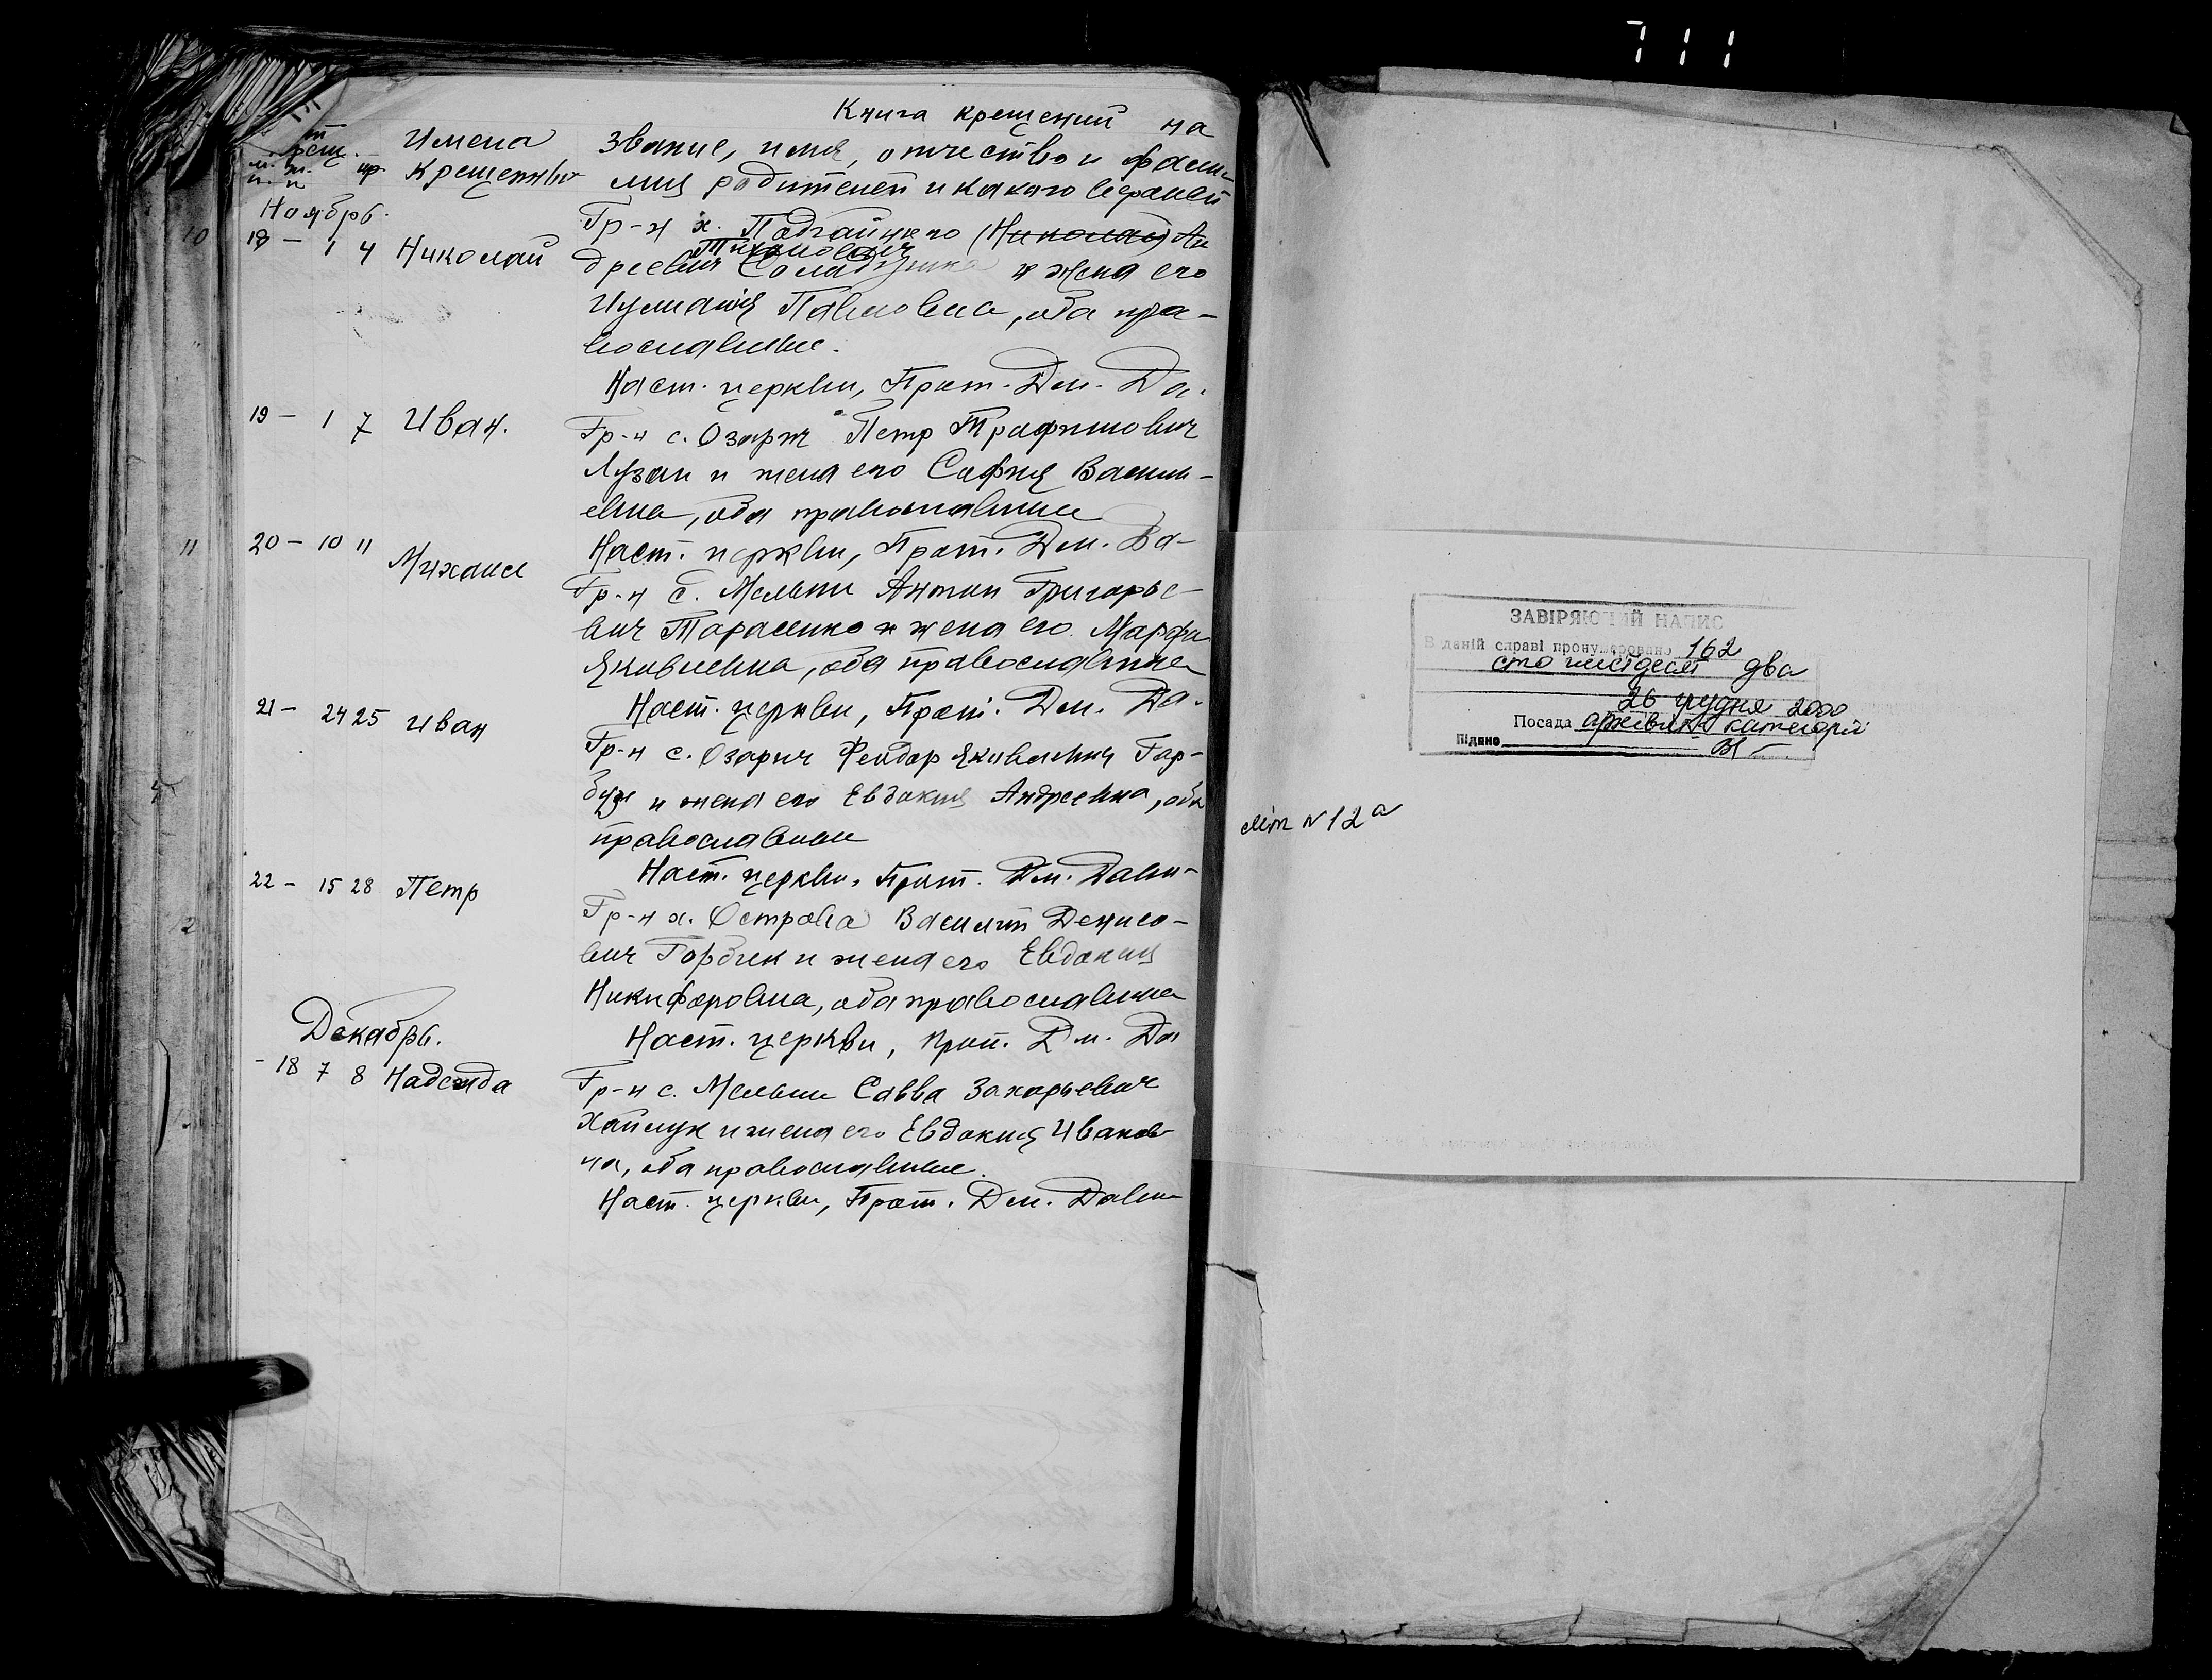 711
Книга крещений на
Имена Звание, имя, отчество и фами-
крещ. м. п. ж. п. кр Крещенных лия родителей и какого вероисп
Ноябрь. Гр-н х. Подгайнего (Николай) Ан
Тихонович
18 - 1 4 Николай дреевич и жена его
Иулиания Павловна, оба пра-
вославные.
Наст. церкви, Прот. Дм. Да.
19 - 1 7 Иван. Гр-н с. Озарич Петр Трофимович
Лузан и жена его София Васил-
евна, оба православные
20 - 10 11 Михаил Наст. церкви, Прот. Дм. Да-
Гр-н с. Мельни Антон Григорье-
вич Тарасенко и жена его Марфа
Яковлевна, оба православные
21 - 24 25 Иван Наст. церкви, Прот. Дм. Да.
Гр-н с. Озарич Феодор Яковлевич Гар-
буз и жена его Евдокия Андреевна, оба
православные
22 - 15 28 Петр Наст. церкви, Прот. Дм. Дави-
Гр-н х. Острова Василий Денисо-
вич Горбик и жена его Евдокия
Никифоровна, оба православные
Декабрь. Наст. церкви, Прот. Дм. Да
- 18 7 8 Надежда Гр-н с. Мельни Савва Захарьевич
Хайлук и жена его Евдокия Иванов
на, оба православные.
Наст. церкви, Прот. Дм. Дави
10
11
12
ЗАВІРЯЮЧИЙ НАПИС
В даній справі пронумеровано 162
сто шістдесят два
26 грудня 2000
Посада архівіст категорії
Підпис
літ N 12а